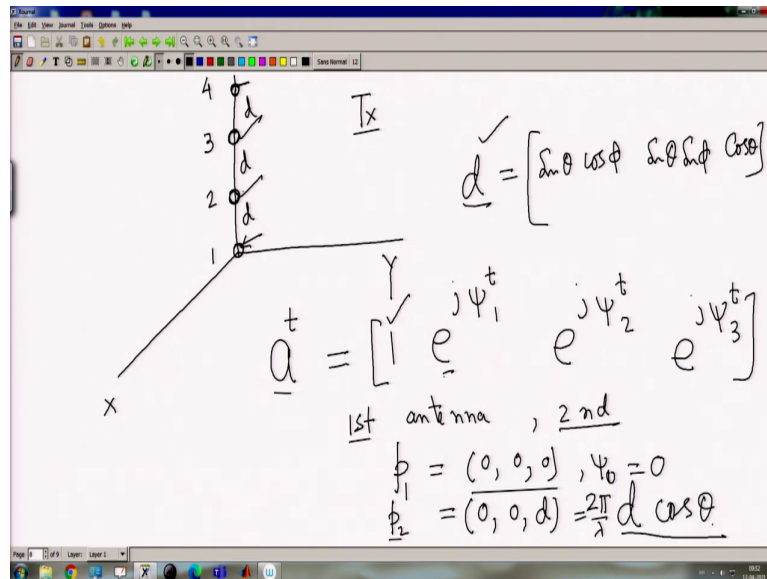 Journal
File Edit View Journal Tools Options Help
Sans Normal 12
4
d
Tx
3
d
2
d
1
Y
X
d = [sinθ cosϕ sinθ sinϕ cosθ]
a^t = [1 e^{jψ_1^t} e^{jψ_2^t} e^{jψ_3^t}]
1st antenna , 2nd
p_1 = (0, 0, 0) , ψ_0 = 0
p_2 = (0, 0, d) = 2π/λ d cosθ
Page 8 of 9 Layer: Layer 1
09:52